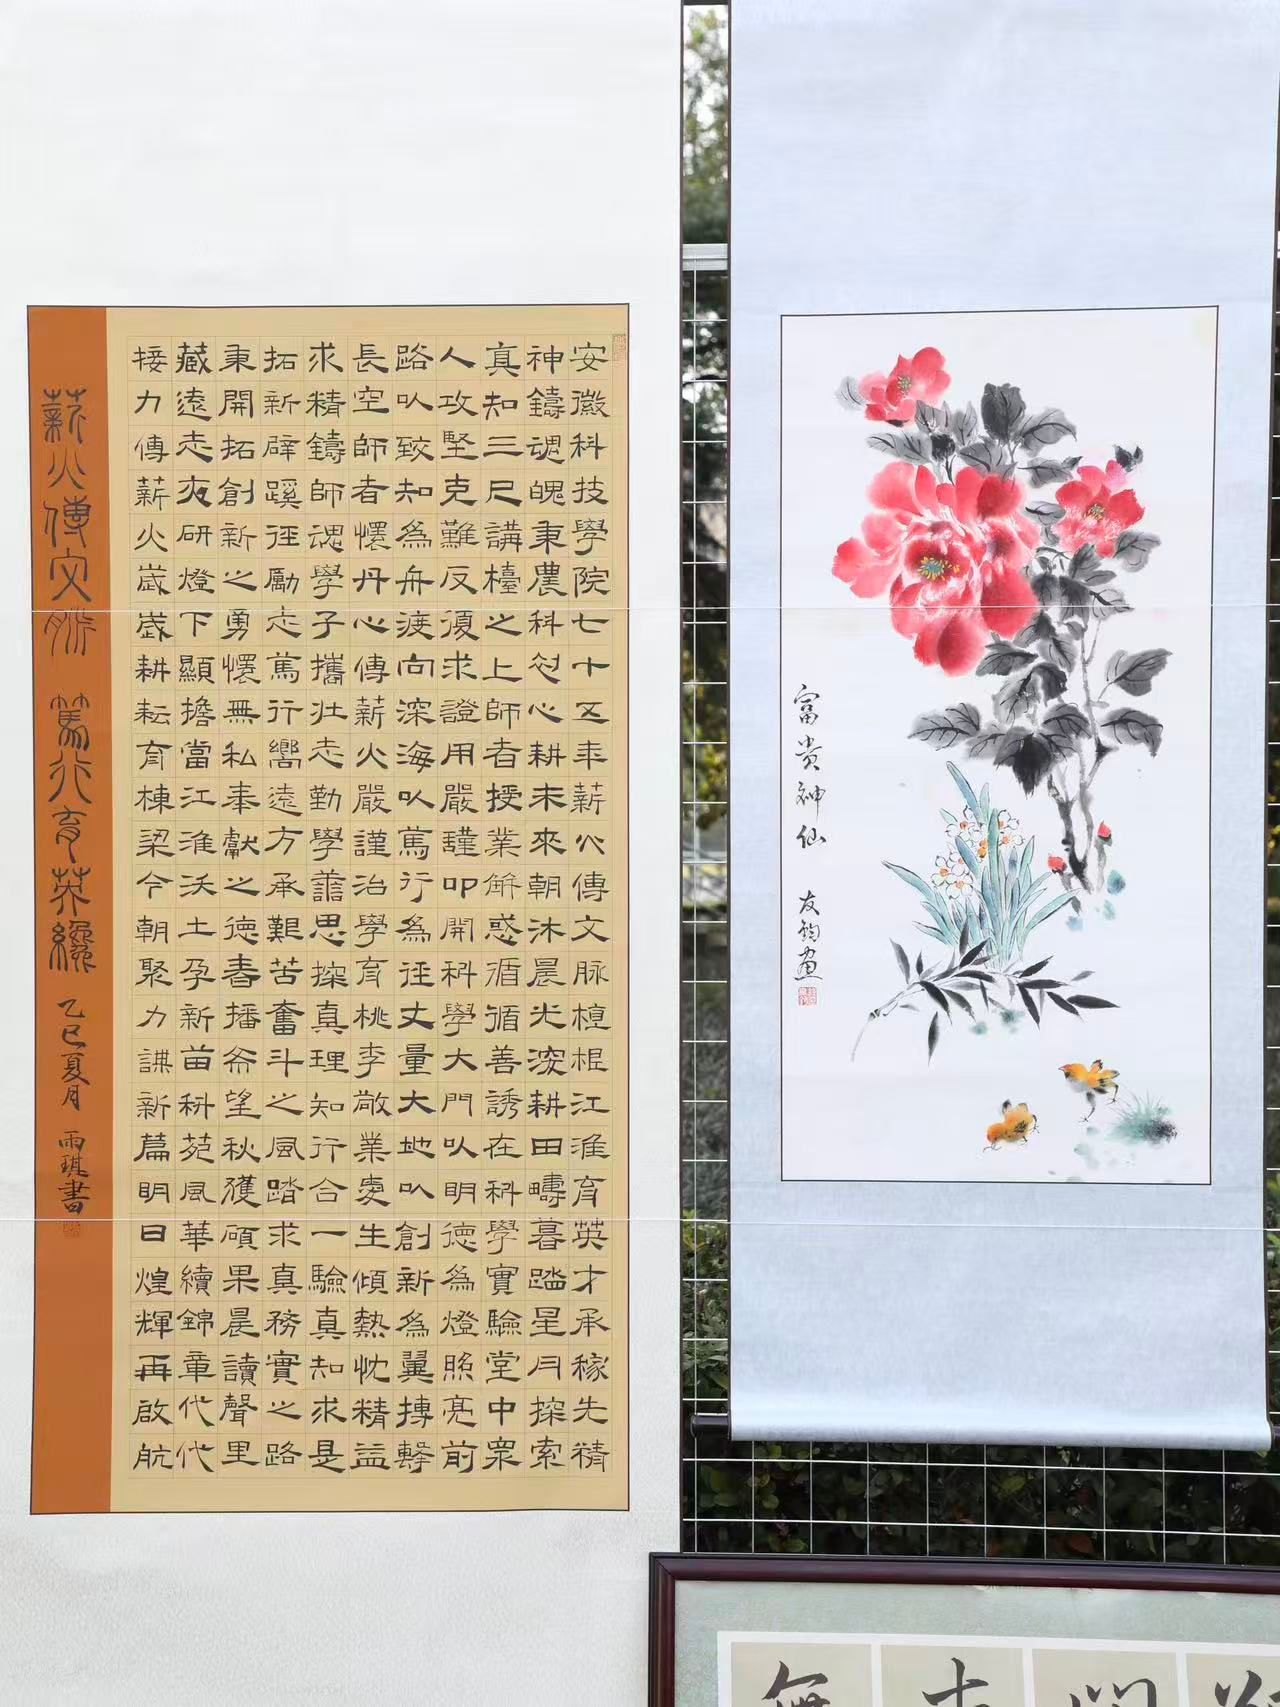 安徽科技學院七十五年薪火傳文脈植根江淮育英才承稼先精
神鑄魂魄秉農科初心耕未來朝沐晨光深耕田疇暮踏星月探索
真知三尺講檯之上師者授業解惑循循善誘在科學實驗堂中眾
人攻堅克難反復求證用嚴謹叩開科學大門以明德為燈照亮前
路以致知為舟渡向深海以篤行為徑丈量大地以創新為翼搏擊
長空師者懷丹心傳薪火嚴謹治學育桃李敬業愛生傾熱忱精益
求精鑄師魂學子攜壯志勤學善思探真理知行合一驗真知求是
拓新辟蹊徑勵志篤行嚮遠方承艱苦奮斗之風踏求真務實之路
秉開拓創新之勇懷無私奉獻之德春播希望秋獲碩果晨讀聲里
藏遠志夜研燈下顯擔當江淮沃土孕新苗科苑風華續錦章代代
接力傳薪火歲歲耕耘育棟梁今朝聚力譜新篇明日煌輝再啟航
薪火傳文脈 篤行育英纔 乙巳夏月 雨琪書
富贵神仙 友鈞画
無